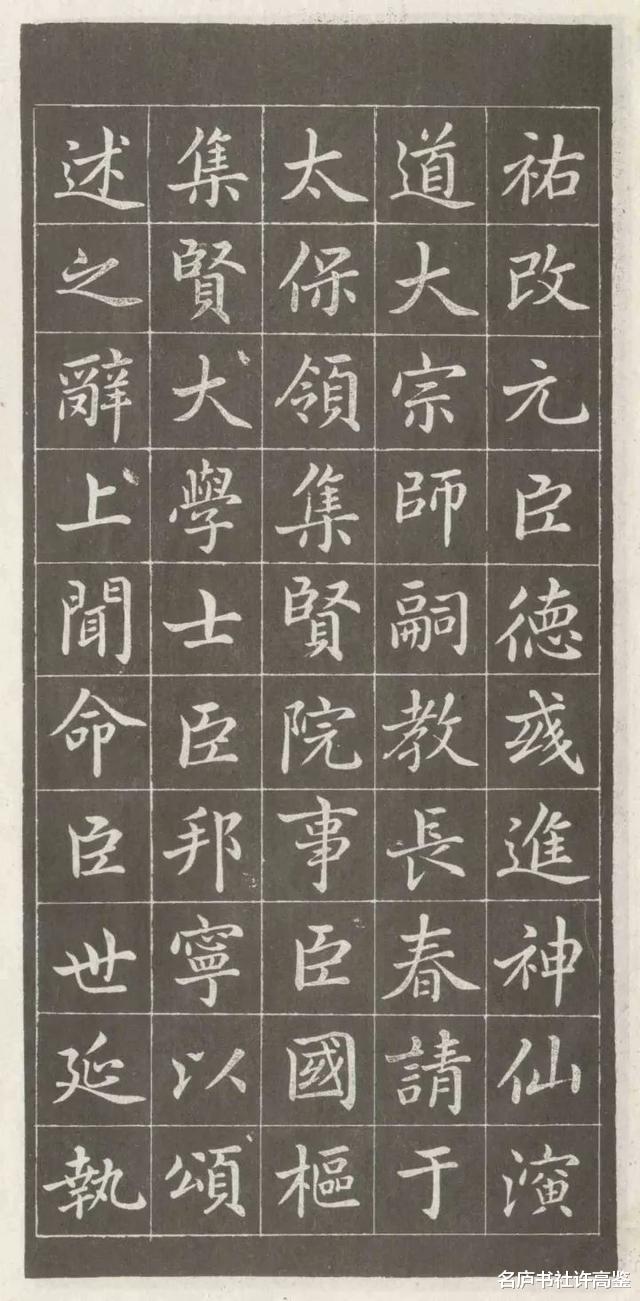 祐改元臣德彧進神仙演
道大宗師嗣教長春請于
太保領集賢院事臣國樞
集賢大學士臣邦寧以頌
述之辭上聞命臣世延執
名庐书社许高鉴